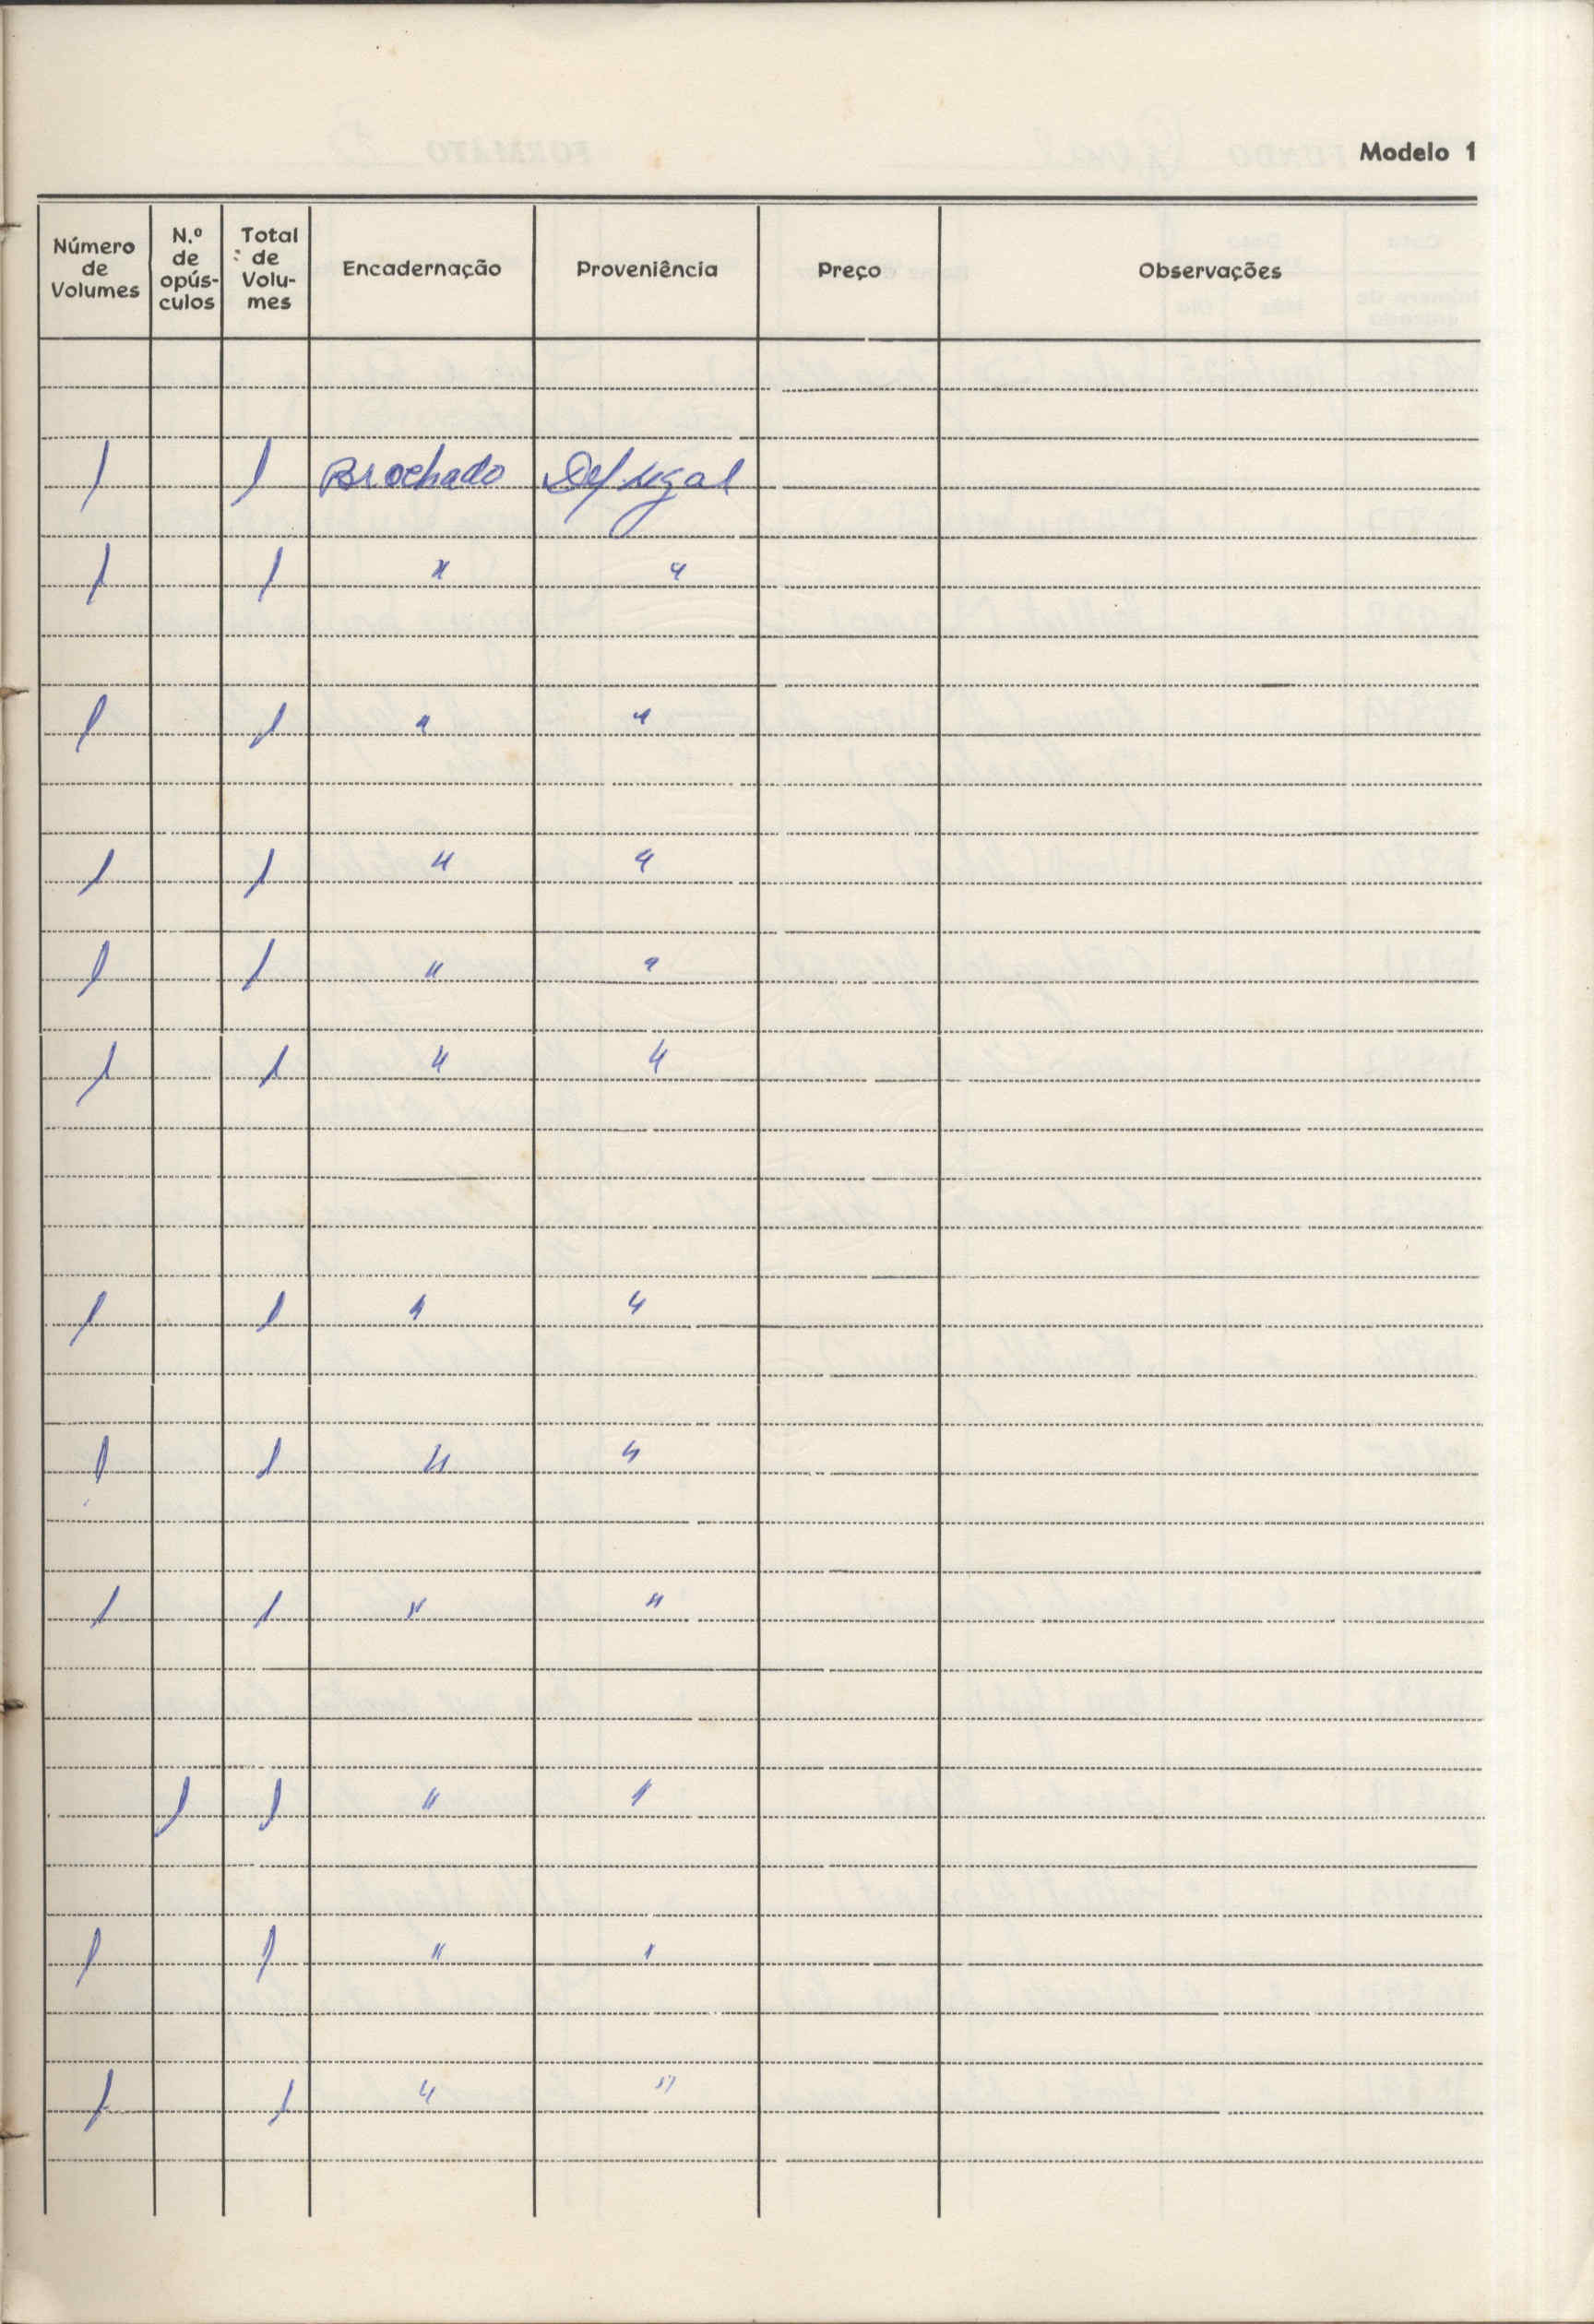 Modelo 1
Número de Volumes | N.º de opús-culos | Total de Volu-mes | Encadernação | Proveniência | Preço | Observações
1 | | 1 | Brochado | Def legal
1 | | 1 | " | "
1 | | 1 | " | "
1 | | 1 | " | "
1 | | 1 | " | "
1 | | 1 | " | "
1 | | 1 | " | "
1 | | 1 | " | "
1 | | 1 | " | "
| 1 | 1 | " | "
1 | | 1 | " | "
1 | | 1 | " | "